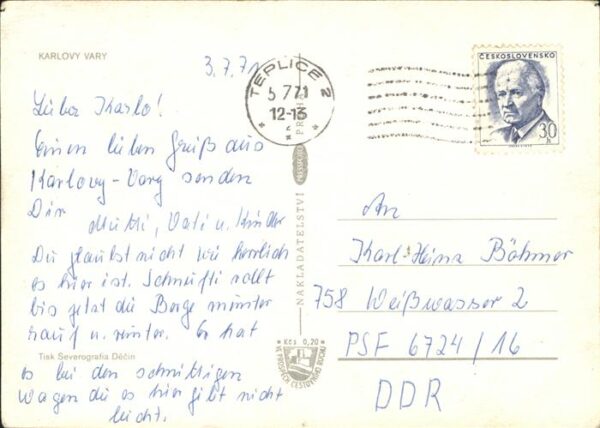 KARLOVY VARY
3.7.71
TEPLICE 2
5 7 71
12-13
ČESKOSLOVENSKO
30
h
Lieber Karlo!
Einen lieben Gruß aus
Karlovy-Vary senden
Dir
Mutti, Vati u. Kinder
Du glaubst nicht wie herrlich
es hier ist. Schnufti rollt
bis jetzt die Berge munter
rauf u. runter. Er hat
Tisk Severografia Děčín
es bei den schnittigen
Wagen die es hier gibt nicht
leicht.
NAKLADATELSTVÍ
PRAHA
Kčs 0,20
VE PROSPĚCH CESTOVNÍHO RUCHU
An
Karl-Heinz Böhmer
758 Weißwasser 2
PSF 6724/16
DDR